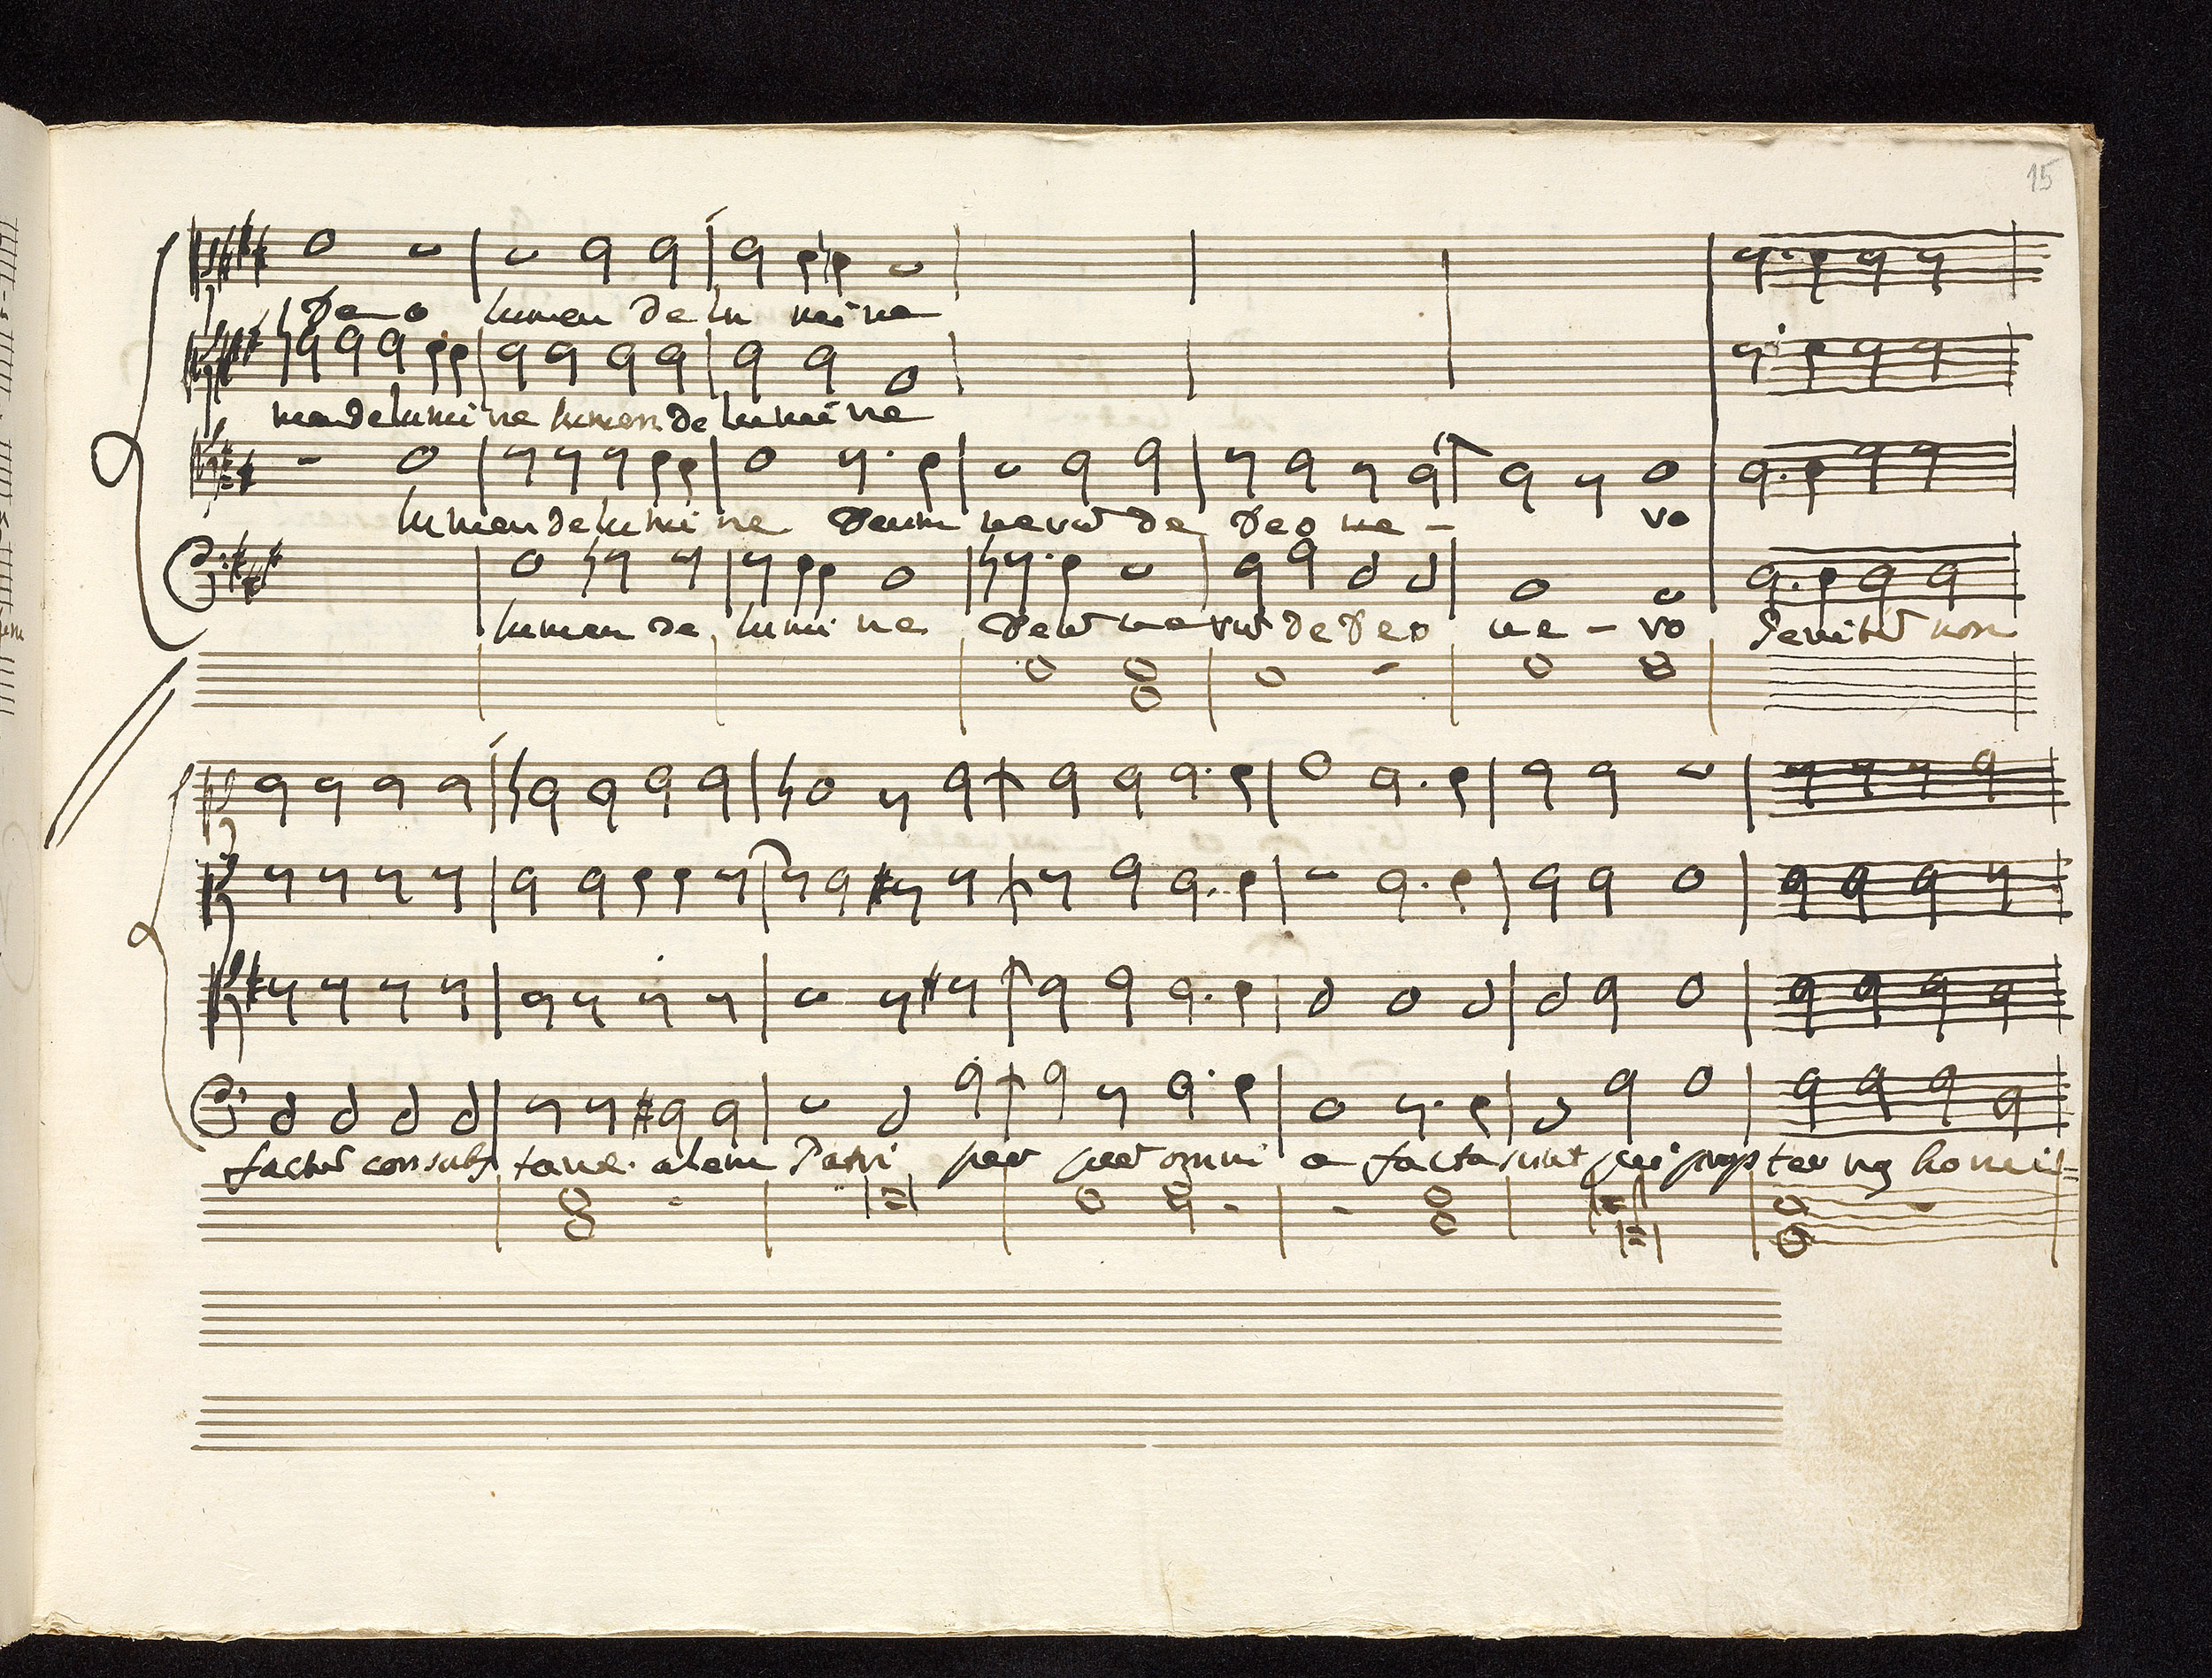 15
Deo lumen de lu mine
men de lumi ne lumen de lumine
lumen de lumi ne Deum verũ de Deo ve - vo
lumen de lumi ne Deũ ve rũ de Deo ve - vo Genitũ non
factũ consubs tanti alem Patri per quẽ omni a facta sunt qui prop ter nos homi=